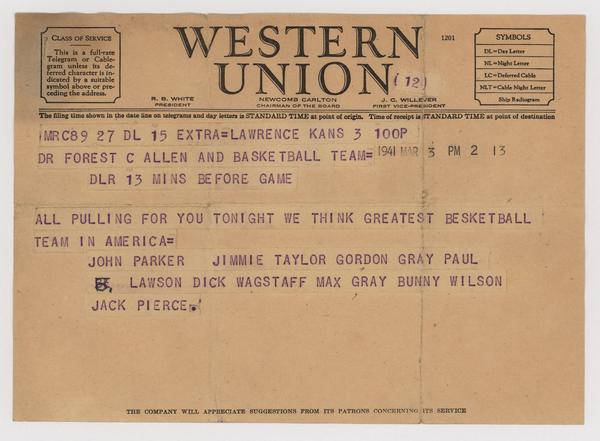 CLASS OF SERVICE
This is a full-rate
Telegram or Cable-
gram unless its de-
ferred character is in-
dicated by a suitable
symbol above or pre-
ceding the address.
WESTERN
UNION
(12)
1201
R. B. WHITE
PRESIDENT
NEWCOMB CARLTON
CHAIRMAN OF THE BOARD
J. C. WILLEVER
FIRST VICE-PRESIDENT
SYMBOLS
DL=Day Letter
NL=Night Letter
LC=Deferred Cable
NLT=Cable Night Letter
Ship Radiogram
The filing time shown in the date line on telegrams and day letters is STANDARD TIME at point of origin. Time of receipt is STANDARD TIME at point of destination
MRC89 27 DL 15 EXTRA=LAWRENCE KANS 3 100P
DR FOREST C ALLEN AND BASKETBALL TEAM=
1941 MAR 3 PM 2 13
DLR 13 MINS BEFORE GAME
ALL PULLING FOR YOU TONIGHT WE THINK GREATEST BESKETBALL
TEAM IN AMERICA=
JOHN PARKER JIMMIE TAYLOR GORDON GRAY PAUL
LAWSON DICK WAGSTAFF MAX GRAY BUNNY WILSON
JACK PIERCE.
THE COMPANY WILL APPRECIATE SUGGESTIONS FROM ITS PATRONS CONCERNING ITS SERVICE